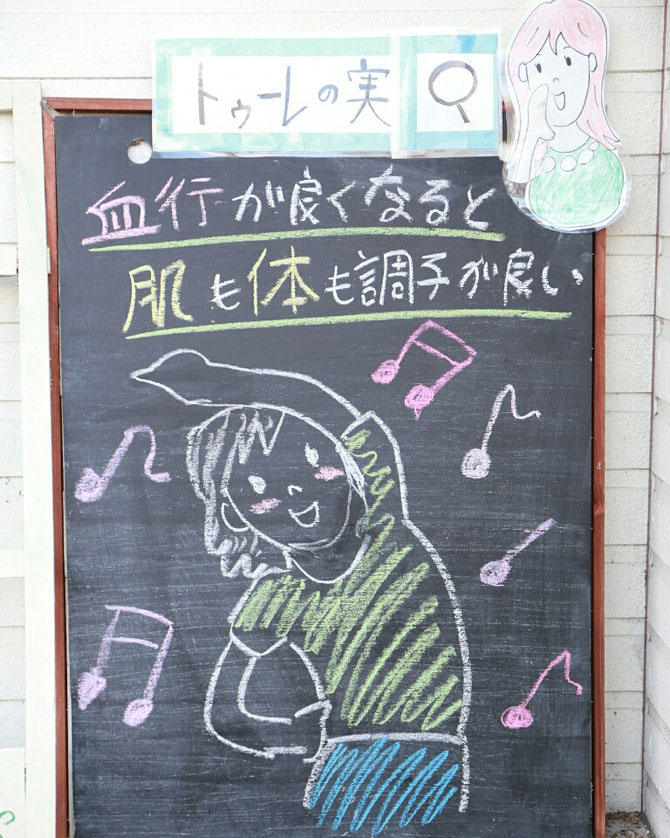 トゥーレの実
血行が良くなると
肌も体も調子が良い